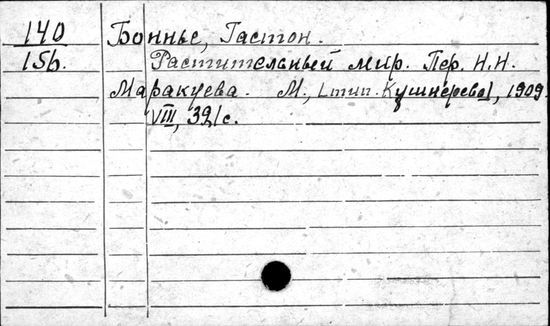 140 Боннье, Гастон.
156. Растительный мир. Пер. Н.Н.
Маракуева. М., [тип. Кушнерева], 1909.
VIII, 321 с.